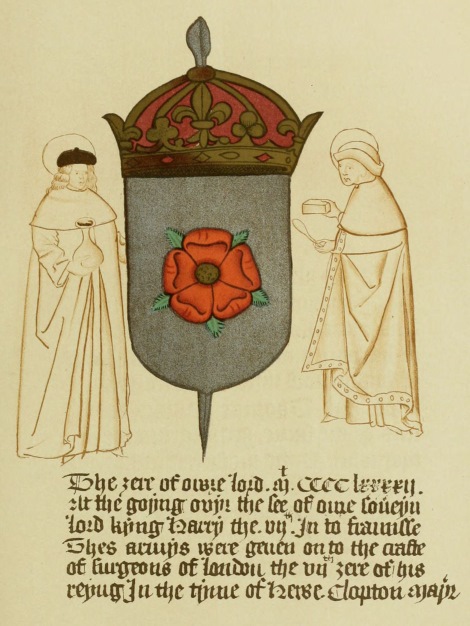 The ȝere of owre lord. M. CCCC lxxxxii.
At the goyng ovyr the see of oure souveyn
lord kyng Harry the. vijth In to fraunsse
Thes armys were geven on to the crafte
of surgeons of london the vijth ȝere of his
reyng In the tyme of Hewe Clopton Mayr